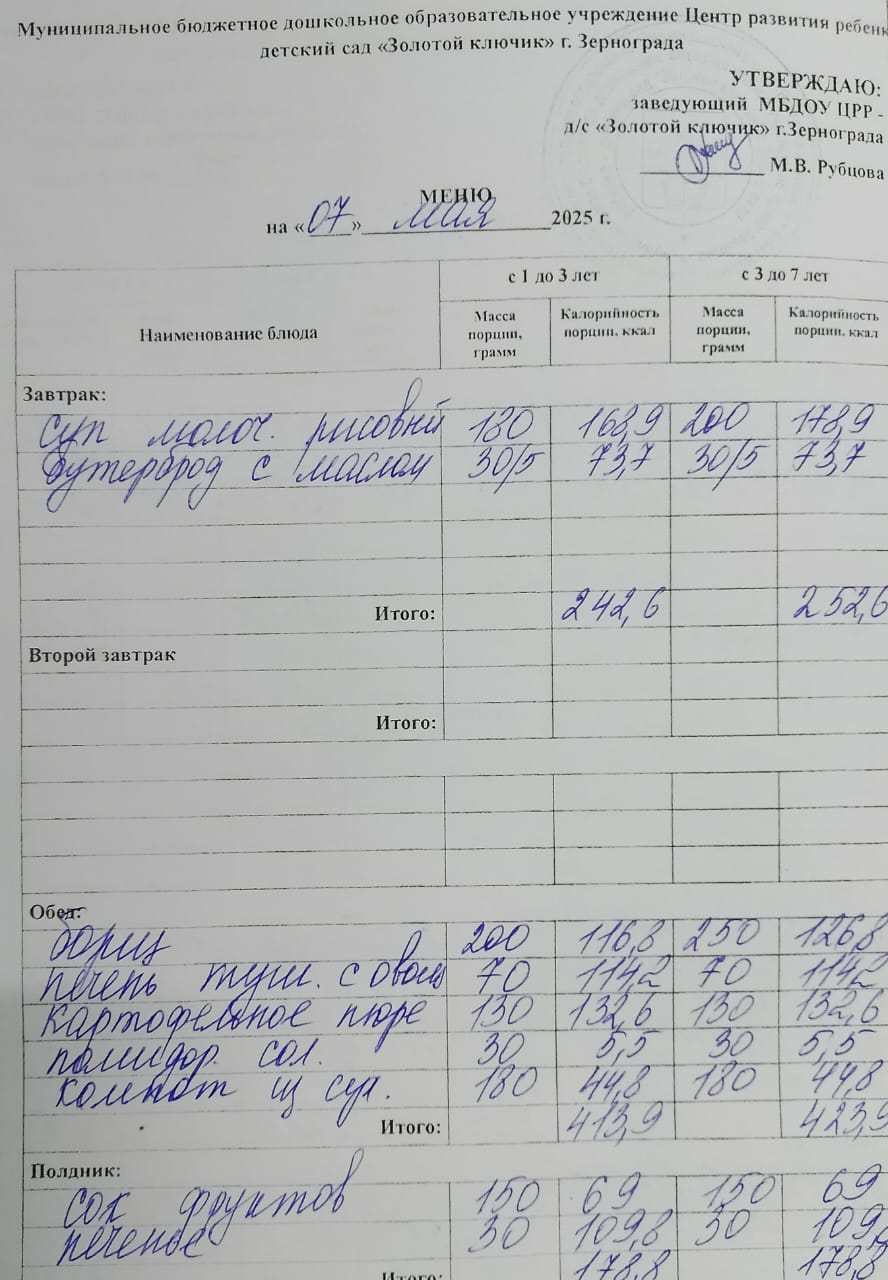 Муниципальное бюджетное дошкольное образовательное учреждение Центр развития ребенк
детский сад «Золотой ключик» г. Зернограда
УТВЕРЖДАЮ:
заведующий МБДОУ ЦРР -
д/с «Золотой ключик» г.Зернограда
М.В. Рубцова
МЕНЮ
на «07» мая 2025 г.
Наименование блюда с 1 до 3 лет с 3 до 7 лет
Масса порции, грамм Калорийность порции. ккал Масса порции, грамм Калорийность порции. ккал
Завтрак:
суп молоч. рисовый 180 168,9 200 178,9
бутерброд с маслом 30/5 73,7 30/5 73,7
Итого: 242,6 252,6
Второй завтрак
Итого:
Обед:
борщ 200 116,8 250 126,8
печень туш. с овощ 70 114,2 70 114,2
картофельное пюре 130 132,6 130 132,6
помидор. сол. 30 5,5 30 5,5
компот из сух. 180 44,8 180 44,8
Итого: 413,9 423,9
Полдник:
сок фруктов 150 69 150 69
печенье 30 109,8 30 109,
Итого: 178,8 178,8